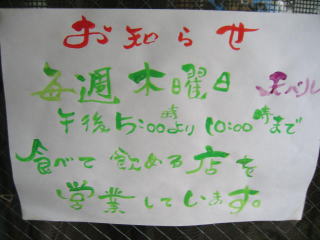 お知らせ
毎週木曜日
午後5:00時より10:00時まで
食べて飲める店を
営業しています。